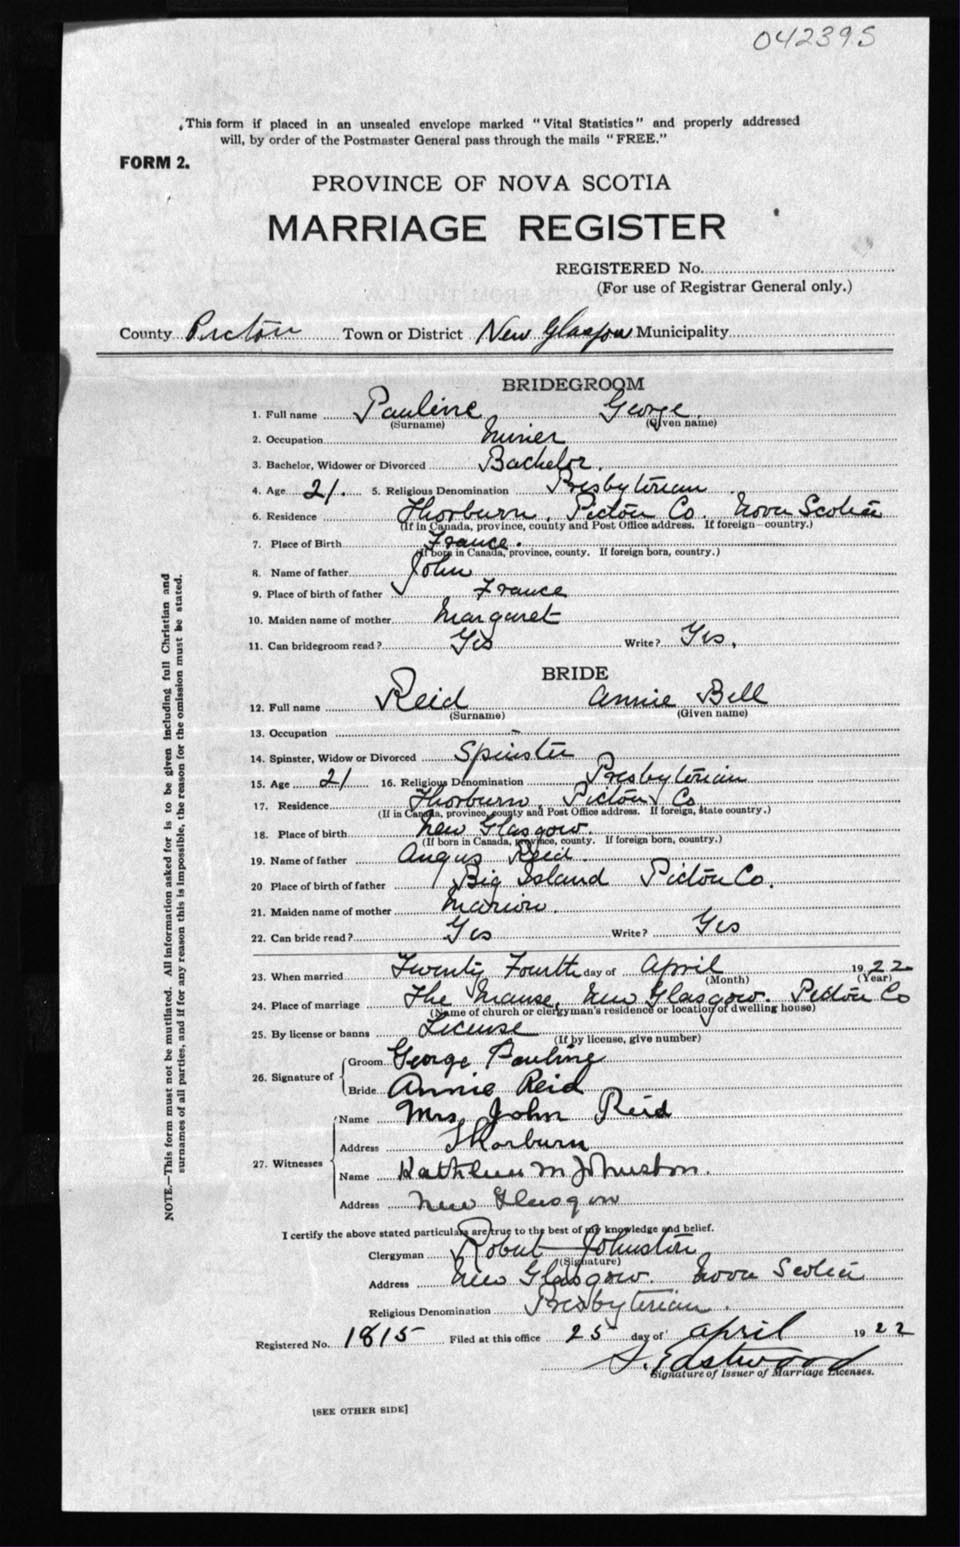 042395
This form if placed in an unsealed envelope marked "Vital Statistics" and properly addressed
will, by order of the Postmaster General pass through the mails "FREE."
FORM 2.
PROVINCE OF NOVA SCOTIA
MARRIAGE REGISTER
REGISTERED No.
(For use of Registrar General only.)
County Pictou Town or District New Glasgow Municipality
BRIDEGROOM
1. Full name Pauline George
(Surname) (Given name)
2. Occupation Miner
3. Bachelor, Widower or Divorced Bachelor.
4. Age 21. 5. Religious Denomination Presbyterian
6. Residence Thorburn, Pictou Co. Nova Scotia
(If in Canada, province, county and Post Office address. If foreign—country.)
7. Place of Birth France.
(If born in Canada, province, county. If foreign born, country.)
8. Name of father John
9. Place of birth of father France
10. Maiden name of mother Margaret
11. Can bridegroom read? Yes Write? Yes.
BRIDE
12. Full name Reid Annie Bell
(Surname) (Given name)
13. Occupation -
14. Spinster, Widow or Divorced Spinster
15. Age 21 16. Religious Denomination Presbyterian
17. Residence Thorburn, Pictou Co
(If in Canada, province, county and Post Office address. If foreign, state country.)
18. Place of birth New Glasgow.
(If born in Canada, province, county. If foreign born, country.)
19. Name of father Angus Reid.
20 Place of birth of father Big Island Pictou Co.
21. Maiden name of mother Marion.
22. Can bride read? Yes Write? Yes
23. When married Twenty Fourth day of April 1922
(Month) (Year)
24. Place of marriage The Manse, New Glasgow. Pictou Co
(Name of church or clergyman's residence or location of dwelling house)
25. By license or banns License
(If by license, give number)
26. Signature of Groom George Pauline
Bride Annie Reid
27. Witnesses Name Mrs John Reid
Address Thorburn
Name Kathleen M Johnston.
Address New Glasgow
I certify the above stated particulars are true to the best of my knowledge and belief.
Clergyman Robert Johnston
(Signature)
Address New Glasgow. Nova Scotia
Religious Denomination Presbyterian.
Registered No. 1815 Filed at this office 25 day of April 1922
S. Eastwood
Signature of Issuer of Marriage Licenses.
[SEE OTHER SIDE]
NOTE.—This form must not be mutilated. All information asked for is to be given including full Christian and
surnames of all parties, and if for any reason this is impossible, the reason for the omission must be stated.